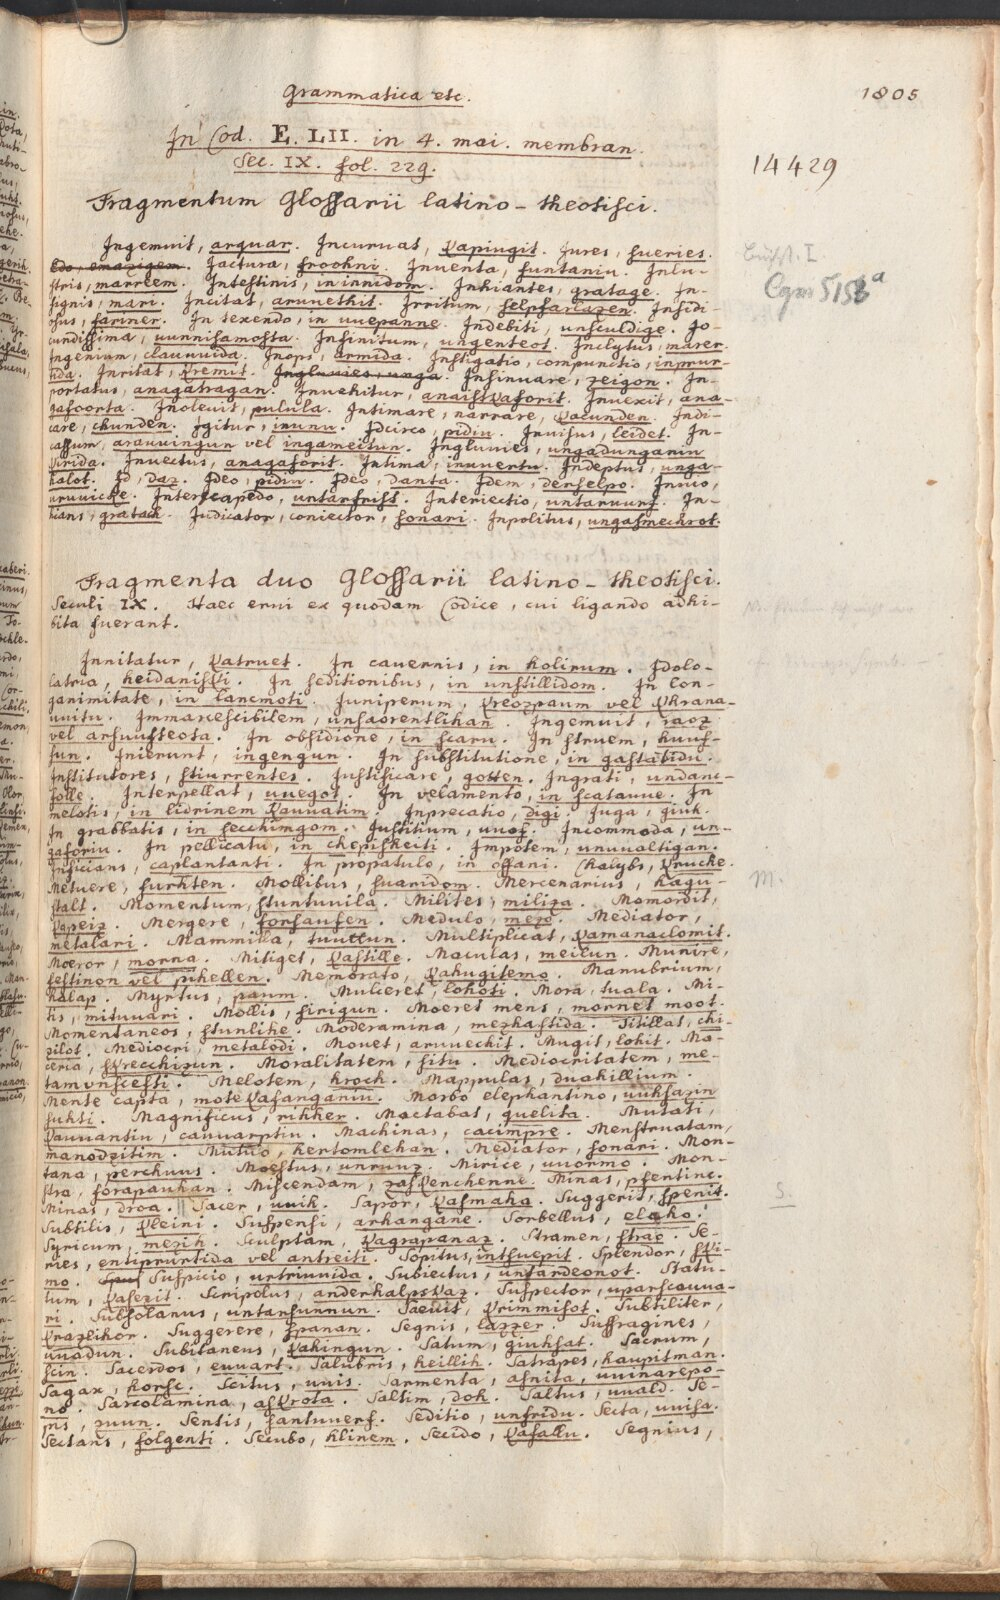 Grammatica etc.
1805
In Cod. E. LII. in 4. mai. membran.
Sec. IX. fol. 229.
14429
Fragmentum Glossarii latino-theotisci.
Ingemuit, arguar. Incuruat, Kapiugit. Jures, fueries.
Edo, emazigem. Jactura, froohni. Inventa, funtaniu. Inlu-
stris, marreem. Intestinis, in innidom. Inhiantes, gratage. In-
signis, mari. Incitat, aruuethit. Irritum, felpfarlazen. Insidi-
osus, fariner. In texendo, in uuepanne. Indebiti, unsculdige. Jo-
cundissima, uunnisamosta. Infinitum, ungenteot. Inclytus, marer.
Ingenium, clauuuida. Inops, armida. Instigatio, compunctio, inprur-
tida. Inritat, Kremit. Ingluuies, unga. Insinuare, zeigon. In-
portatus, anagatragan. Inuehitur, anaistKaforit. Inuexit, ana-
gafoorta. Inoleuit, pulula. Intimare, narrare, Kacunden. Indi-
care, chunden. Igitur, inunu. Idcirco, pidiu. Inuisus, leidet. In-
cassum, arauuingun vel ingameitun. Ingluuies, ungadunganin
Kirida. Inuectus, anagaforit. Intima, inuuertu. Indeptus, unga-
halot. Id, daz. Ideo, pidiu. Ideo, danta. Idem, derselpo. Innuo,
Intercapedo, untarfrist. Interiectio, untaruurf. In-
hians, gratach. Judicator, coniector, sonari. Inpolitus, ungasmechrot.
Cgm 5153a
Fragmenta duo Glossarii latino-theotisci.
Seculi IX. Haec erui ex quodam Codice, cui ligando adhi-
bita fuerant.
Innitatur, Katruet. In cauernis, in holirum. Idolo-
latria, heidanisKi. In seditionibus, in unstillidom. In Lon-
ganimitate, in lancmoti. Juniperum, vel
uuitu. Immarcescibilem, unsaorentlihan. Ingemuit, raoz
vel arsuufteota. In obsidione, in scaru. In struem, huuf-
fun. Inierunt, ingengun. In substitutione, in gastatidu.
Institutores, stiurrentes. Justificare, gotten. Ingrati, undanc-
folle. Interpellat, uuegot. In velamento, in scatauue. In
melotis, in lidrinem Kauuatim. Inprecatio, digi. Juga, giuh.
In grabbatis, in secchimgom. Justitium, Incommoda, un-
gaforiu. In pellicatu, in chepiskeiti. Impotem, unuualtigan.
Insicians, caplantanti. In propatulo, in offani. Chalybs, Krucke.
Metuere, furhten. Mollibus, suaridom. Mercenarius, hagu-
stalt. Momentum, stuntuuila. Milites, miliza. Momordit,
Kapeiz. Mergere, forsaufen. Medulo, mezo. Mediator,
metalari. Mammilla, tuuttun. Multiplicat, Kamanaclomit.
Moeror, morna. Mitiget, Kastille. Maculas, meilun. Munire,
festinon vel pihellen. Memorato, Kahugitemo. Manubrium,
halap. Myrtus, paum. Mulceret, lohoti. Mora, tuala. Mi-
tis, mituuari. Mollis, sirigun. Moeret mens, mornet moot.
Momentaneos, stunlihe. Moderamina, mezhaftida. Titillat, chi-
zilot. Mediocri, metalodi. Mouet, aruuechit. Mugit, lohit. Ma-
ceria, sprecchizun. Moralitatem, situ. Mediocritatem, me-
tamunscefti. Melotem, hroch. Mappulas, duahillium.
Mente capta, moteKafanganiu. Morbo elephantino,
suhti. Magnificus, rihher. Mactabat, quelita. Mutati,
Kauuantiu, cauuarptiu. Machinas, cacimpre. Menstruatam,
manodzitim. Mutilo, hertomlehan. Mediator, sonari. Mon-
tana, perchuus. Moestus, unrunz. Mirice, uuormo. Mon-
stra, forapauhan. Miscendam, zasKenchenne. Minas, psentinc.
Minas, droa. || Sacer, uuih. Sapor, Kasmaha. Suggerit, spenit.
Subtilis, Kleini. Suspensi, arhangane. Sorbellus, elaho.
Syricum, mezih. Sculptam, Kagrapanaz. Stramen, strao. Se-
ries, entiprurtida vel antreiti. Sopitus, intsuepit. Splendor, sKi-
mo. Suspicio, urtriuuida. Subiectus, untardeonot. Statu-
tum, Kasezit. Scripolus, anderhalpsKaz. Suspector, uparscouua-
ri. Subsolanus, untarsunnun. Saeuit, Krimmisot. Subtiliter,
Krazlihor. Suggerere, spanan. Segnis, lazzer. Suffragines,
uuadun. Subitaneus, Kahingun. Satum, giuhsat. Sacrum,
scin. Sacerdos, euuart. Salubris, heillih. Satrapes, haupitman.
Sagax, horse. Scitus, uuis. Sarmenta, asnita, uuinarepo-
no. Sarcolamina, asKrota. Saltim, doh. Saltus, uuald. Se-
pis, zuun. Sentis, hantuuerf. Seditio, unfridu. Secta, uuisa.
Sectans, folgenti. Secubo, hlinem. Secido, Kafallu. Segnius,
M.
S